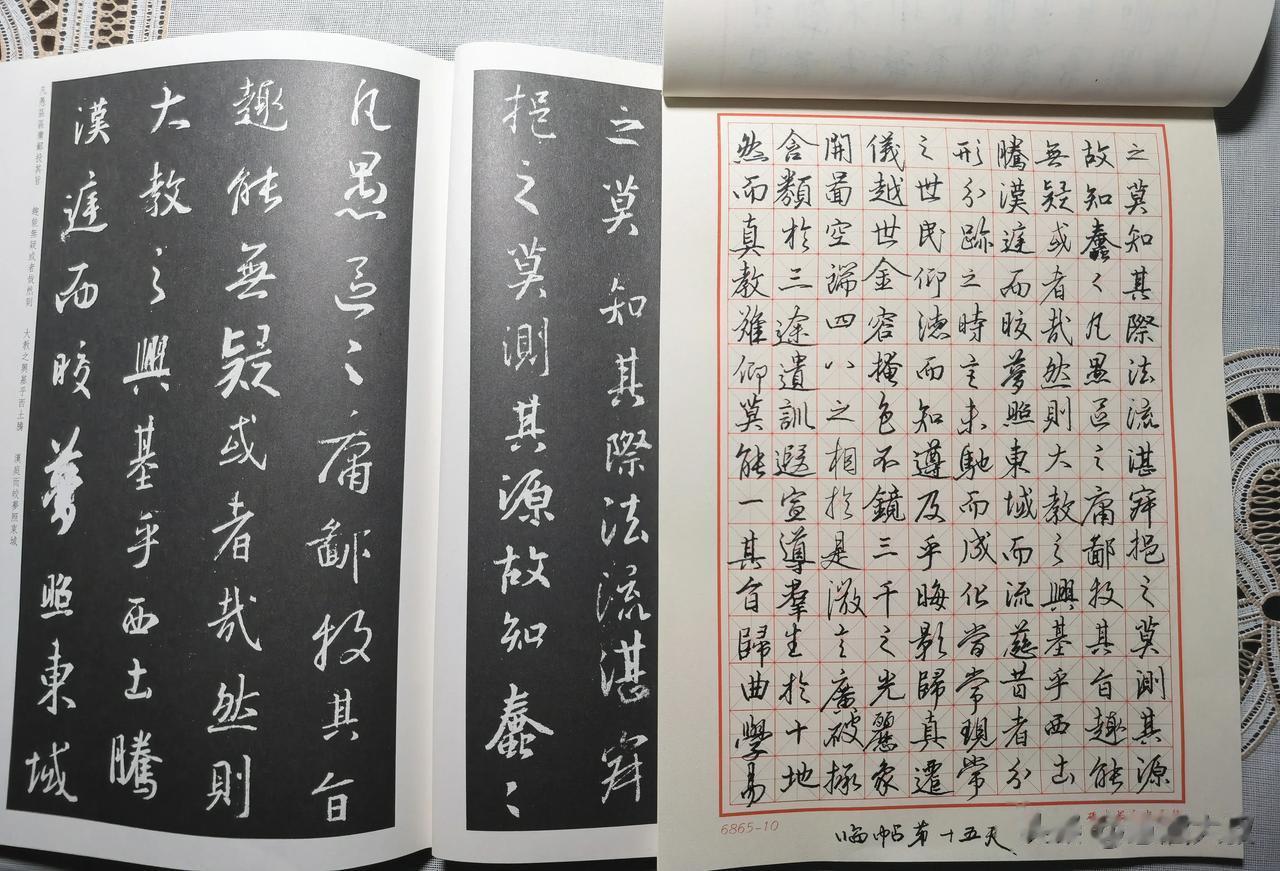 之莫知其際法流湛寂
挹之莫測其源故知蠢々
凡愚區々庸鄙投其旨
趣能無疑或者哉然則
大教之興基乎西土騰
漢庭而皎夢照東域
凡愚區區庸鄙投其旨
趣能無疑或者哉然則
大教之興基乎西土騰
漢庭而皎夢照東域
之莫知其際法流湛寂挹之莫測其源
故知蠢々凡愚區之庸鄙投其旨趣能
無疑或者哉然則大教之興基乎西土
騰漢庭而皎夢照東域而流慈昔者分
形分跡之時言未馳而成化當常現常
之世民仰德而知遵及乎晦影歸真遷
儀越世金容掩色不鏡三千之光麗象
開圖空端四八之相於是微言廣破拯
含類於三途遺訓遐宣導羣生於十地
然而真教難仰莫能一其旨歸曲學易
6865-10
临帖第十五天